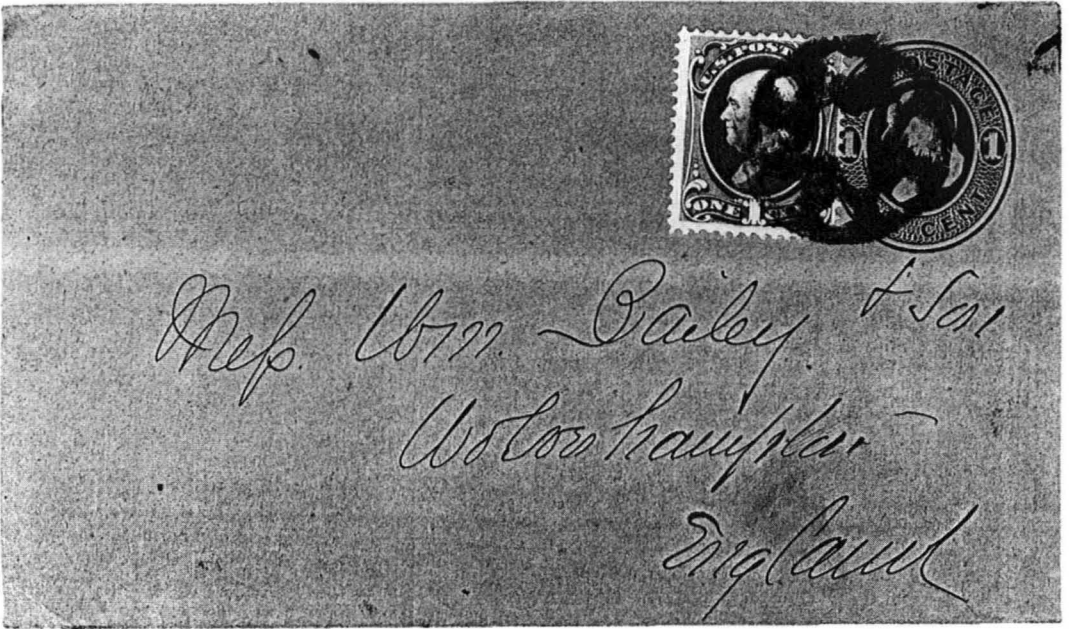 U.S. POST
1 POSTAGE 1
ONE 1 CENT
Mess. Wm. Bailey & Son
Wolverhampton
England